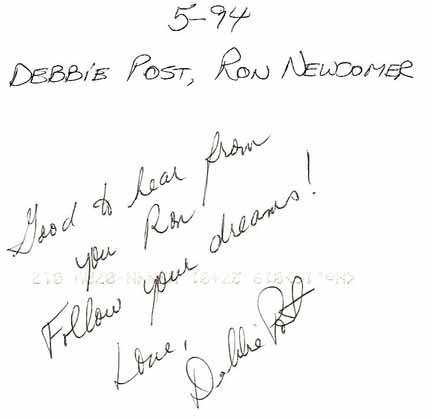 5-94
DEBBIE POST, RON NEWCOMER
Good to hear from
you Ron
Follow your dreams!
Love,
Debbie Post